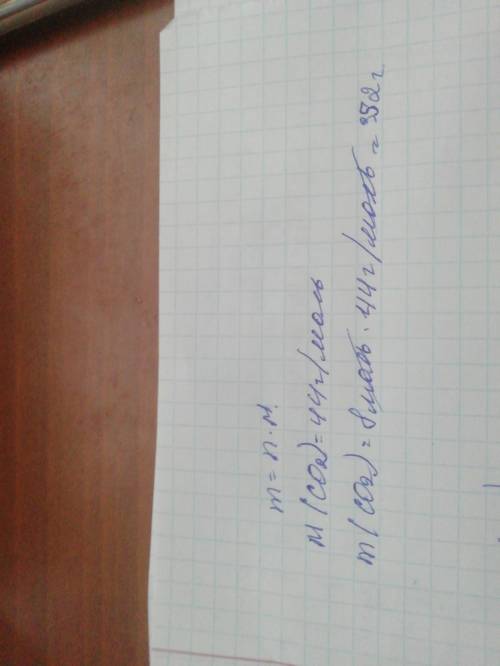 m = n · M.
M (CO₂) = 44 г/моль
m (CO₂) = 8 моль · 44 г/моль = 352 г